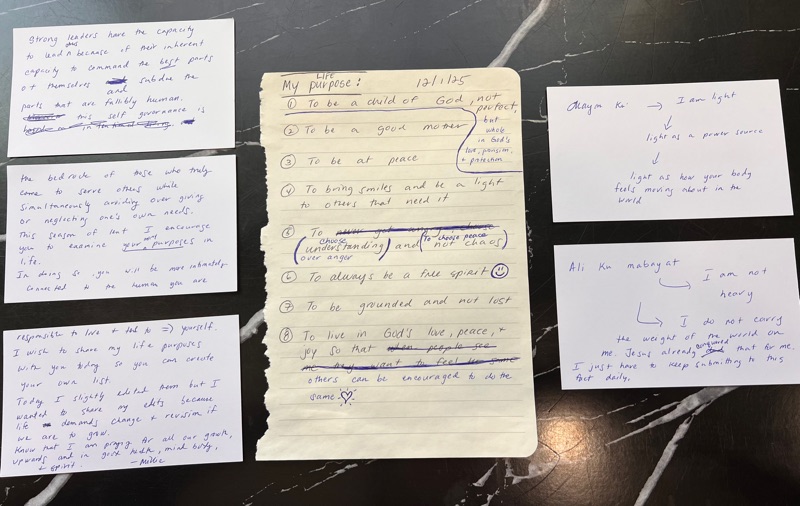 Strong leaders have the capacity
to lead ous because of their inherent
capacity to command the best parts
of themselves and subdue the
parts that are fallibly human.
this self governance is
the bedrock of those who truly
come to serve others while
simultaneously avoiding over giving
or neglecting one's own needs.
This season of lent I encourage
you to examine your own purposes in
life.
In doing so, you will be more intimately
connected to the human you are
responsible to love + tend to => yourself.
I wish to share my life purposes
with you today so you can create
your own list.
Today I slightly edited them but I
wanted to share my edits because
life demands change + revision if
we are to grow.
Know that I am praying for all our growth,
upwards and in good health, mind body,
+ spirit. -Millie
My LIFE purpose: 12/1/25
① To be a child of God, not
perfect,
but
whole
in God's
love, provision,
+ protection
② To be a good mother
③ To be at peace
④ To bring smiles and be a light
to others that need it
⑤ To never get any
choose (To choose peace
(understanding) and not chaos)
over anger
⑥ To always be a free spirit ☺
⑦ To be grounded and not lost
⑧ To live in God's love, peace, +
joy so that when people see
me they want to feel the same
others can be encouraged to do the
same ♡
→ I am light
light as a power source
light as how your body
feels moving about in the
world
Ali Ku mabayat
I am not
heavy
I do not carry
the weight of the world on
me. Jesus already conquered that for me.
I just have to keep submitting to this
fact daily.